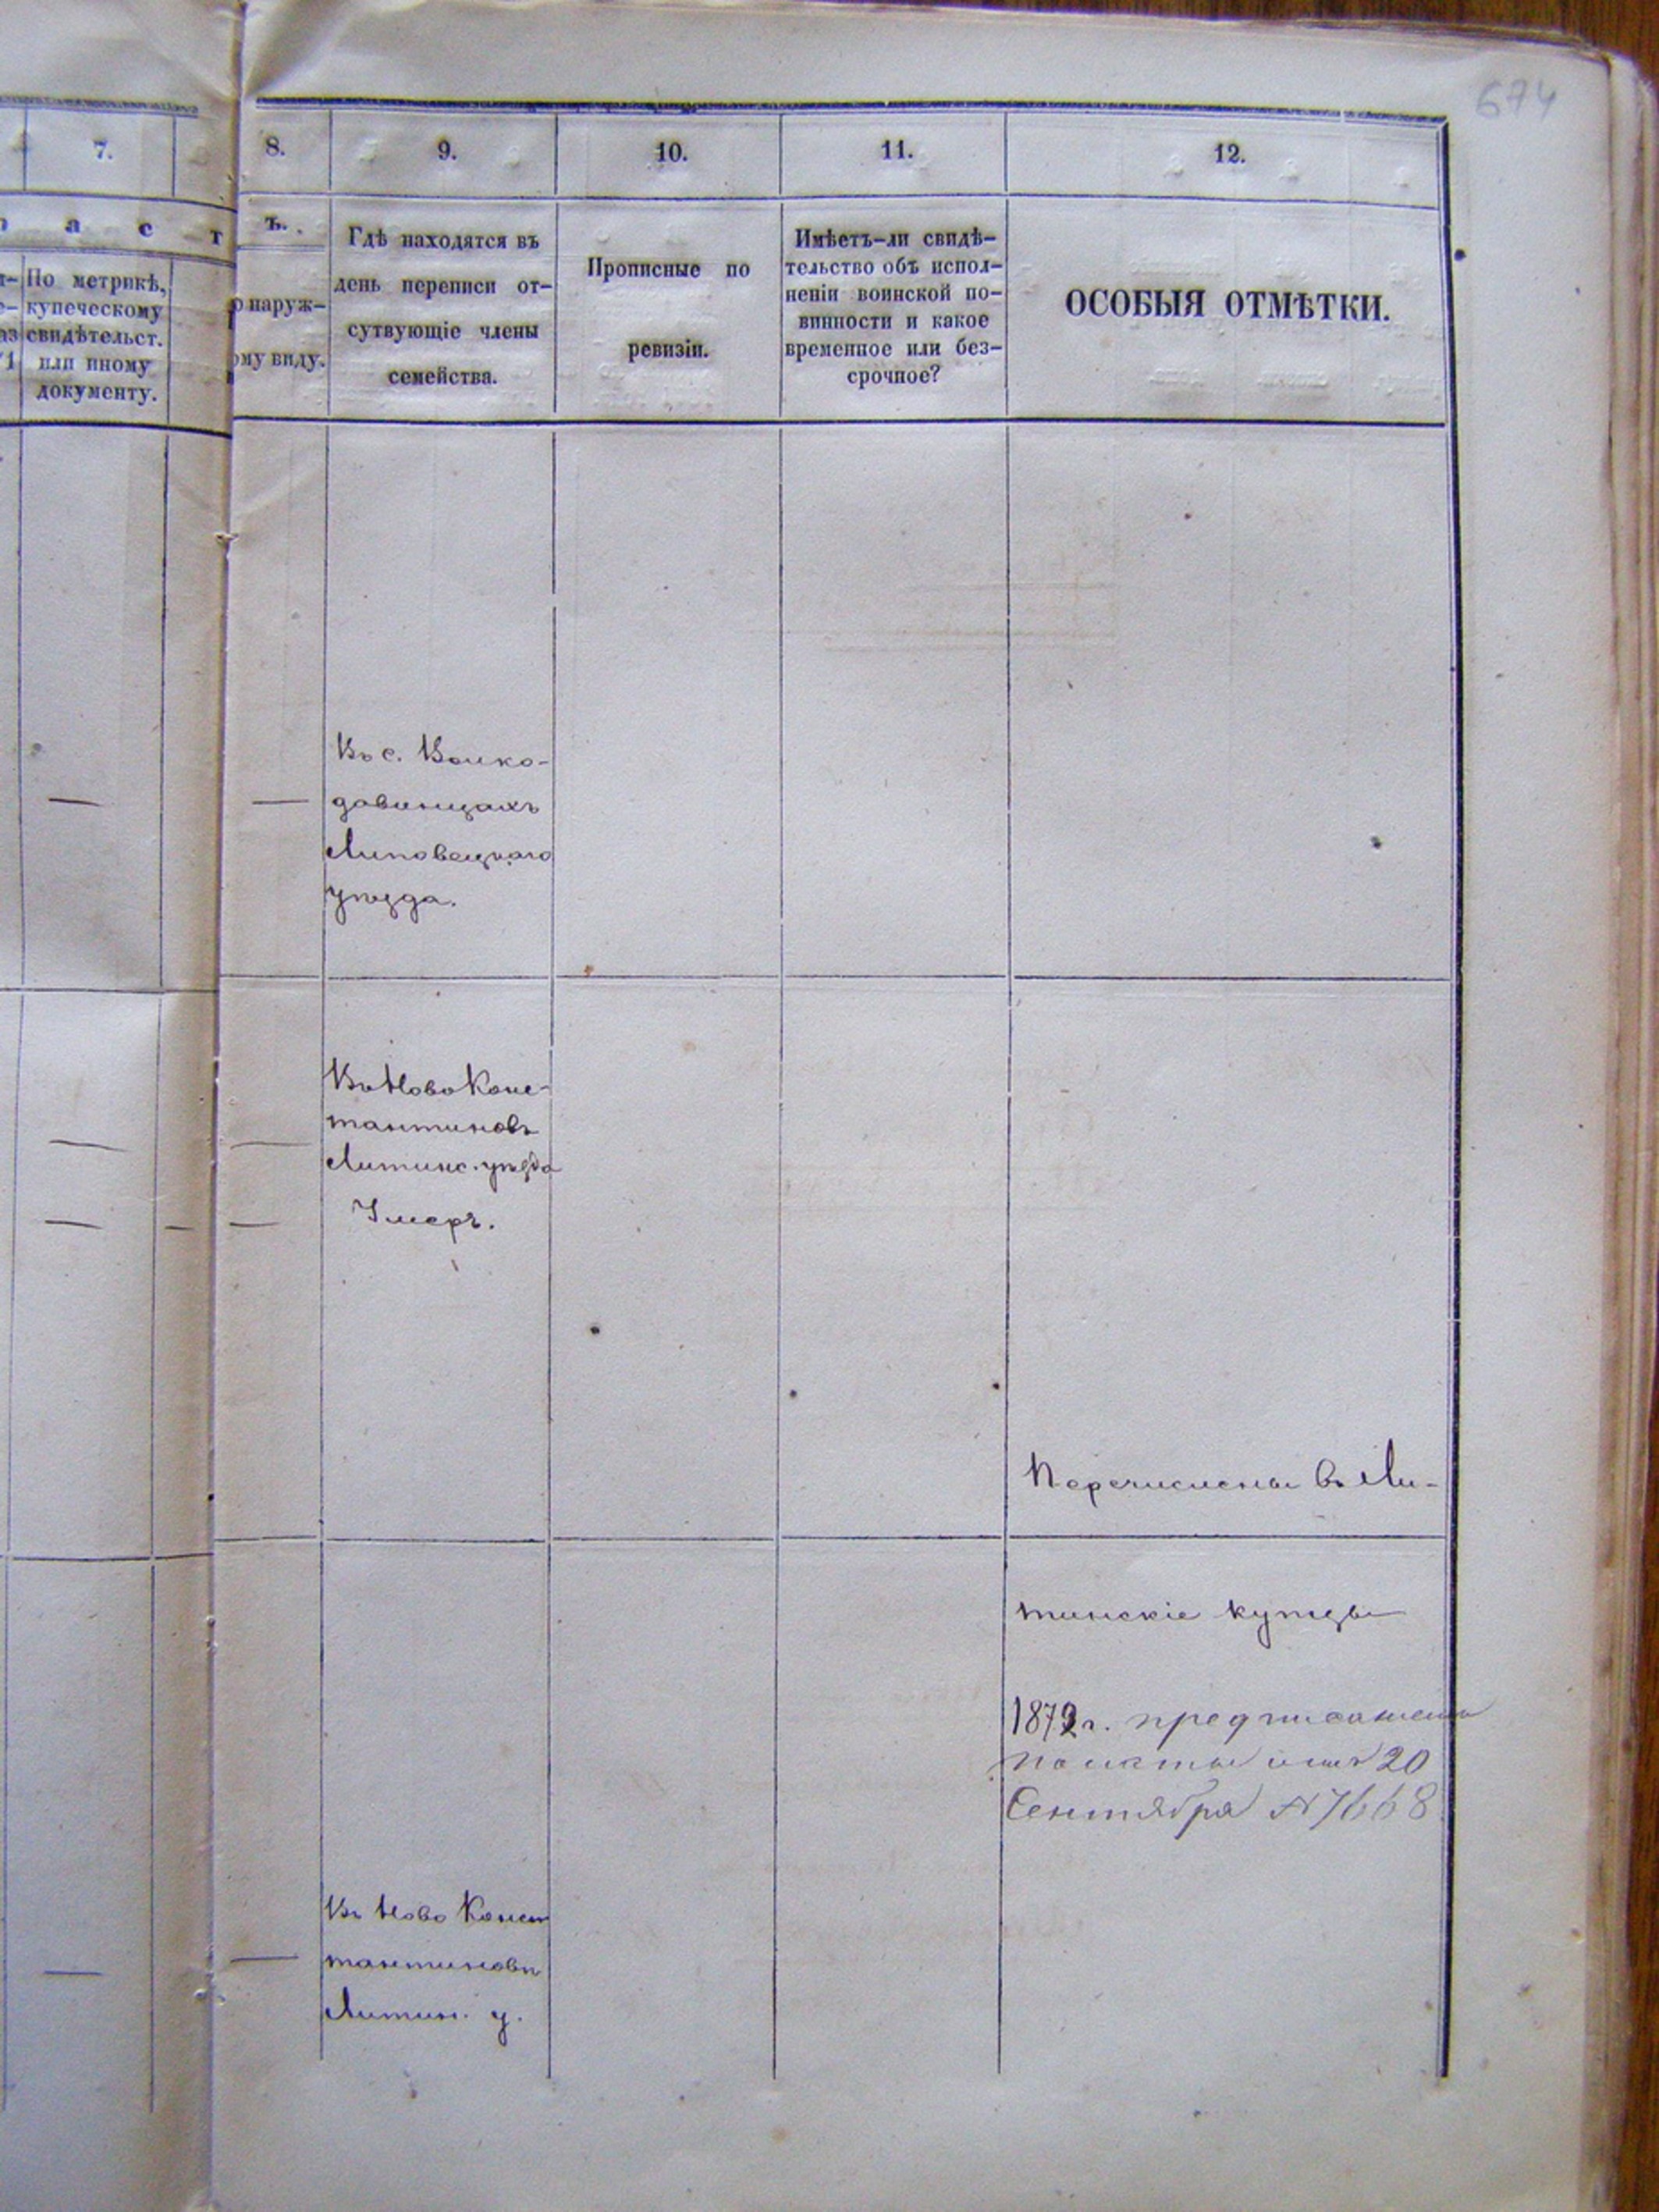 674
7.
8.
9.
10.
11.
12.
а с т
ъ.
По метрикѣ,
купеческому
свидѣтельст.
или иному
документу.
наруж-
ому виду.
Гдѣ находятся въ
день переписи от-
сутвующіе члены
семейства.
Прописные по
ревизіи.
Имѣетъ-ли свидѣ-
тельство объ испол-
неніи воинской по-
винности и какое
временное или без-
срочное?
ОСОБЫЯ ОТМѢТКИ.
Въ с. Волко-
давинцахъ
Липовецкаго
уѣзда.
Въ Ново Конс-
тантиновѣ
Литинс. уѣзда
Умеръ.
Перечислены въ Ли-
тинскіе купцы
1872 г. предписаніем
палаты отъ 20
Сентября № 7668
Въ Ново Конст
тантиновѣ
Литин. у.